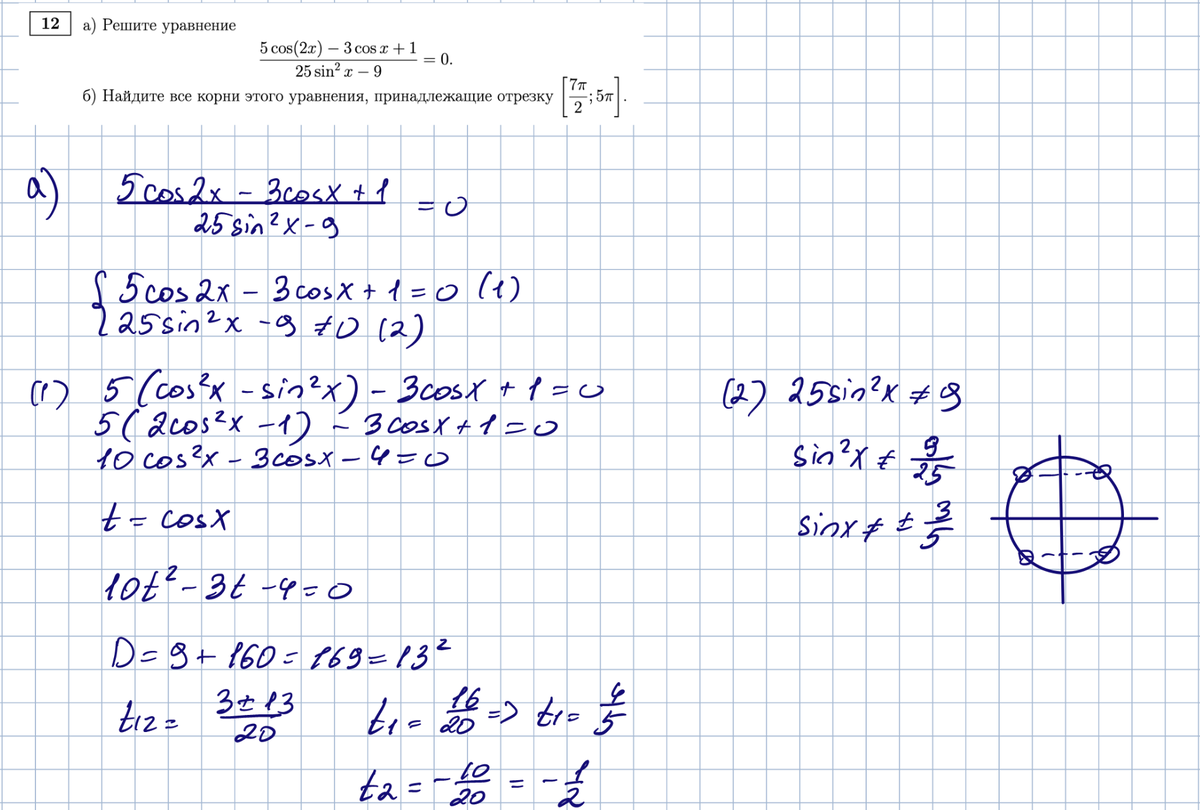 12 а) Решите уравнение
5 cos(2x) − 3 cos x + 1
25 sin² x − 9
= 0.
б) Найдите все корни этого уравнения, принадлежащие отрезку [7π/2; 5π].
а) 5cos2x − 3cosx + 1
25sin²x − 9
= 0
{ 5cos2x − 3cosx + 1 = 0 (1)
25sin²x − 9 ≠ 0 (2)
(1) 5(cos²x − sin²x) − 3cosx + 1 = 0
5(2cos²x − 1) − 3cosx + 1 = 0
10cos²x − 3cosx − 4 = 0
t = cosx
10t² − 3t − 4 = 0
D = 9 + 160 = 169 = 13²
t12 = (3 ± 13)/20 t1 = 16/20 => t1 = 4/5
t2 = −10/20 = −1/2
(2) 25sin²x ≠ 9
sin²x ≠ 9/25
sinx ≠ ± 3/5